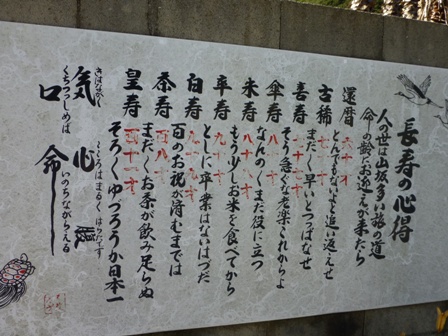 長寿の心得
人の世は山坂多い旅の道
命の齢にお迎えが来たら
還暦 六十才 とんでもないよと追い返えせ
古稀 七十才 まだまだ早いとつっぱなせ
喜寿 七十七才 そう急ぐな老楽これからよ
傘寿 八十才 なんのまだまだ役に立つ
米寿 八十八才 もう少しお米を食べてから
卒寿 九十才 としに卒業はないはづだ
白寿 九十九才 百のお祝が済むまでは
茶寿 百八才 まだまだお茶が飲み足らぬ
皇寿 百十一才 そろそろゆづろうか日本一
気 きはながく
心 こころはまるく はらたてず
口 くちつつしめば
命 いのちながらえる